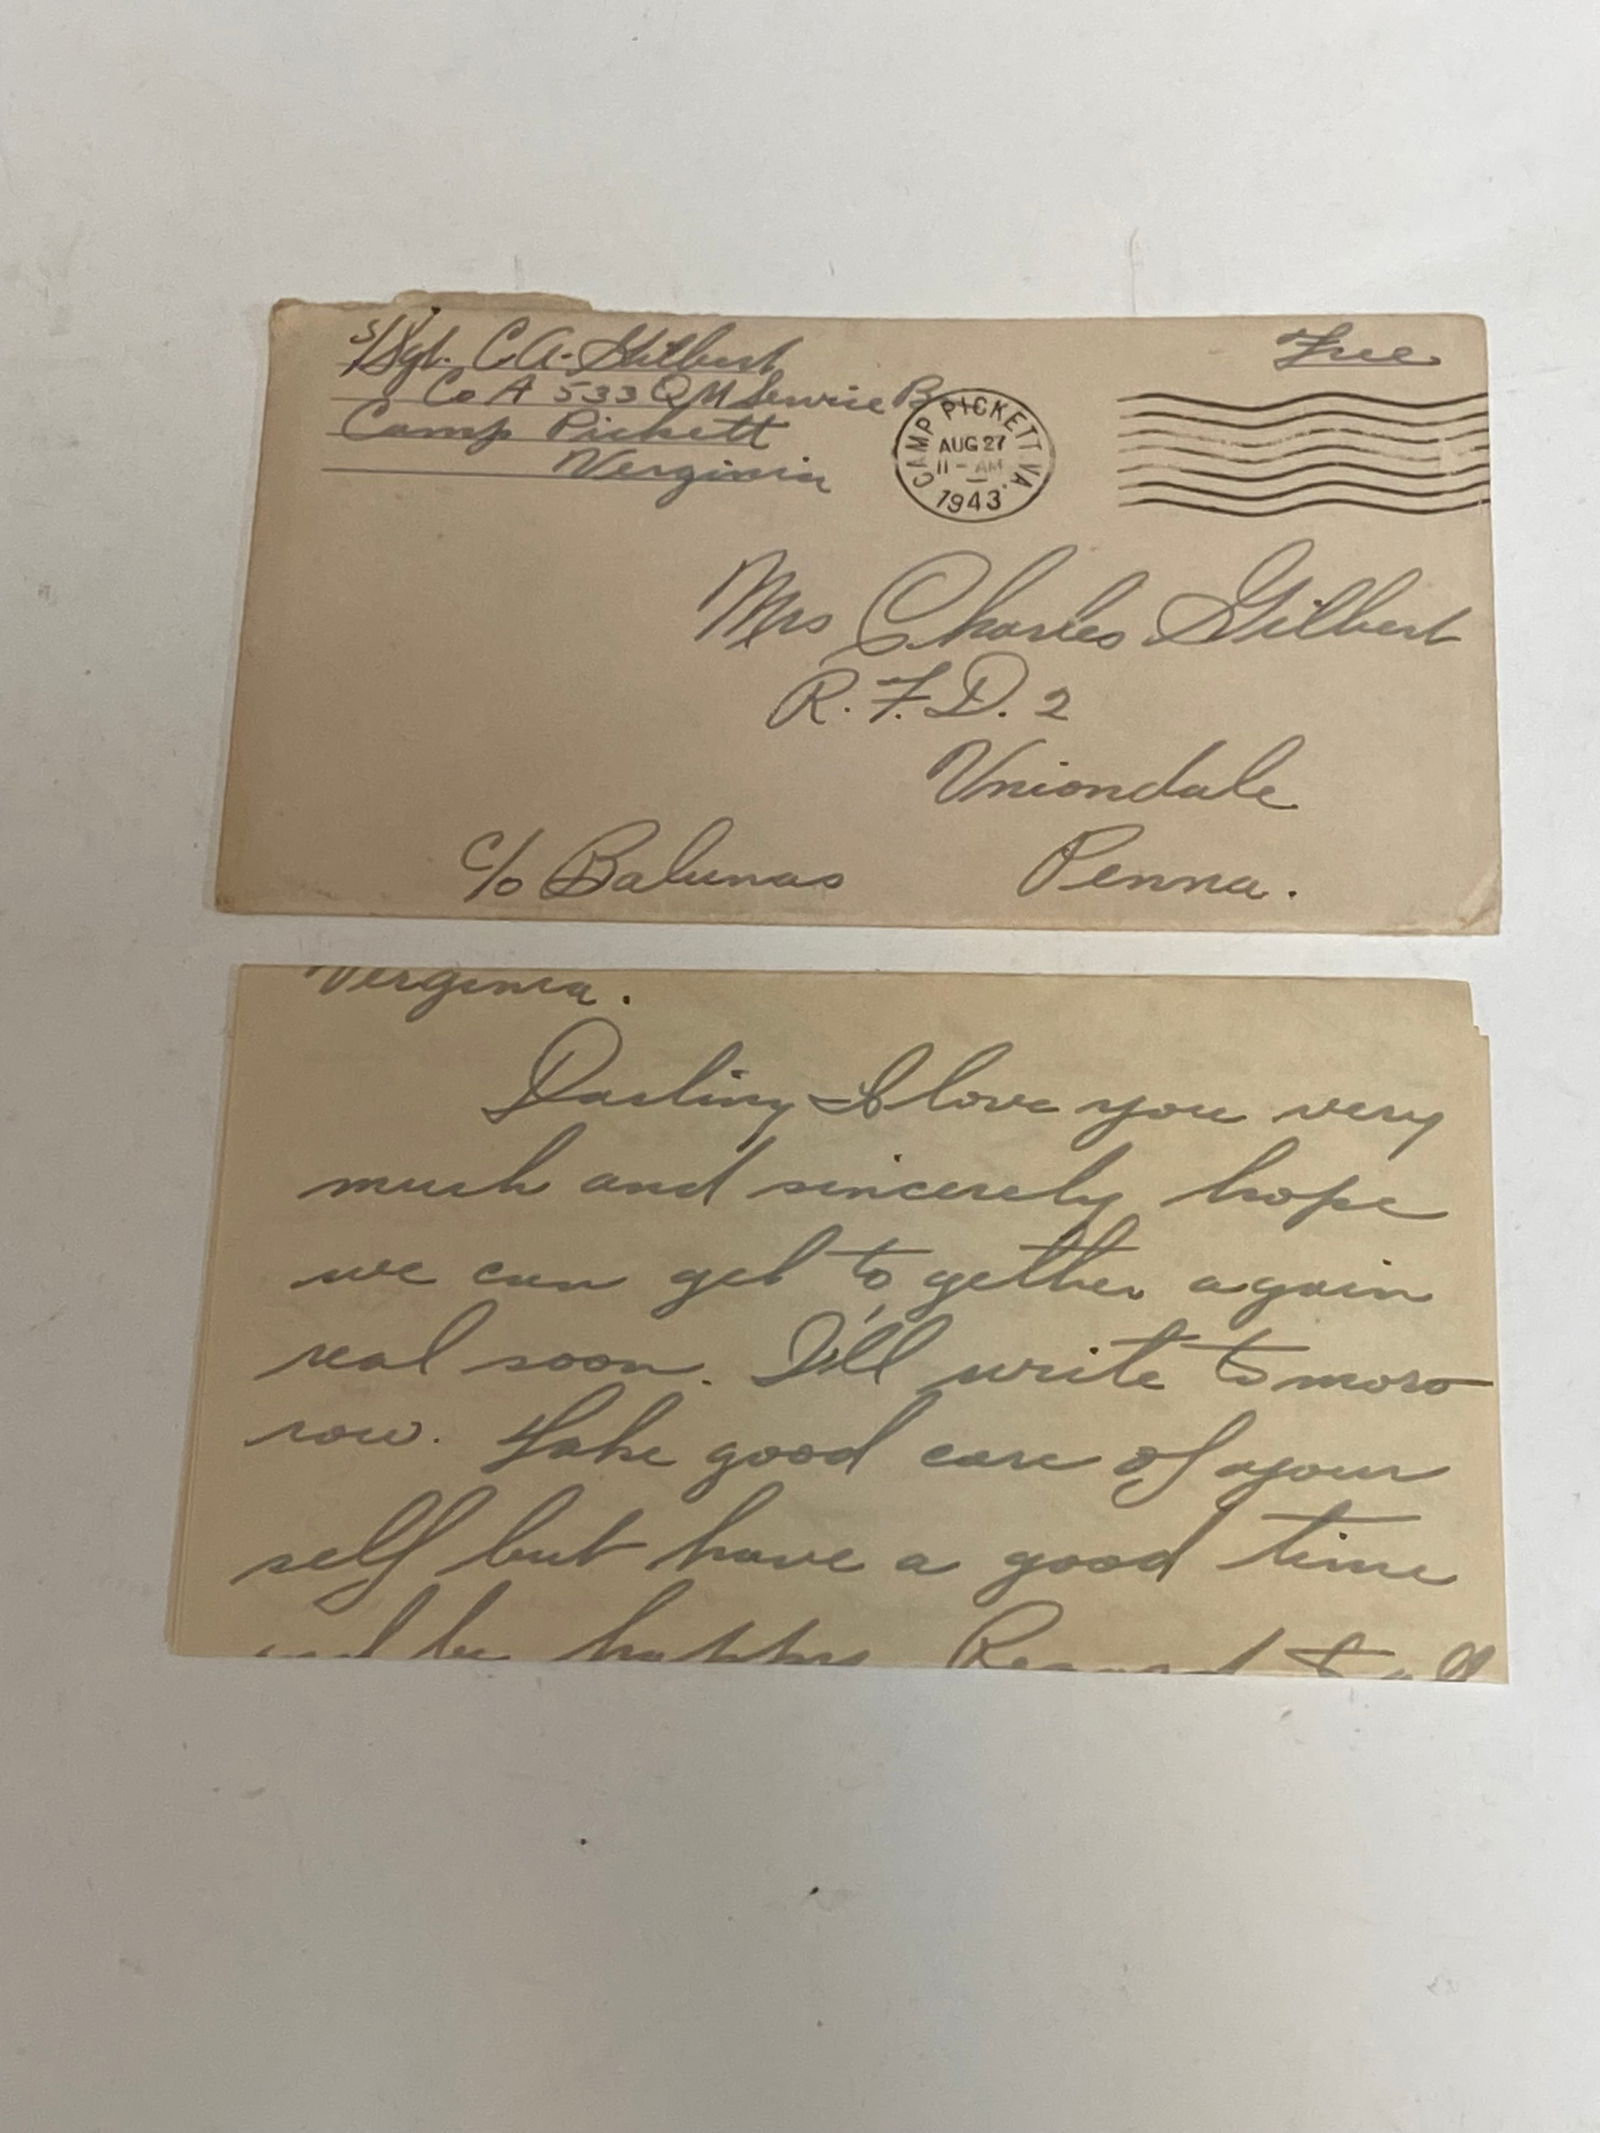 S/Sgt. C.A. Gilbert
Co A 533 QM Service Bn
Camp Pickett
Verginia
Free
CAMP PICKETT VA.
AUG 27
11 - AM
1943
Mrs Charles Gilbert
R.F.D. 2
Uniondale
c/o Balunas
Penna.
Verginia.
Darling I love you very
much and sincerely hope
we can get to gether again
real soon. I'll write tomoro
row. Take good care of your
self but have a good time
and be happy. Regard to all